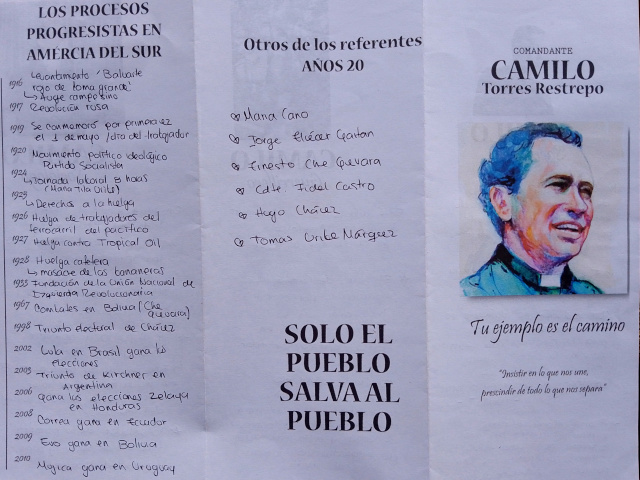 LOS PROCESOS
PROGRESISTAS EN
AMÉRCIA DEL SUR
1916 Levantamiento 'Baluarte
rojo de loma grande'
↳ Auge campesino
1917 Revolución rusa
1919 Se conmemoró por primera vez
el 1 de mayo / día del trabajador
1920 Movimiento político ideológico
Partido Socialista
1924 ↳ Jornada laboral 8 horas
(Maria Tila Uribe)
1925 ↳ Derechos a la huelga
1926 Huelga de trabajadores del
ferrocarril del pacífico
1927 Huelga contra Tropical Oil
1928 Huelga cafetera
↳ masacre de las bananeras
1933 Fundación de la Unión Nacional de
Izquierda Revolucionaria
1967 Combates en Bolivia (Che
Guevara)
1998 Triunfo electoral de Chávez
2002 Lula en Brasil gana las
elecciones
2003 Triunfo de Kirchner en
Argentina
2006 gana las elecciones Zelaya
en Honduras
2008 Correa gana en Ecuador
2009 Evo gana en Bolivia
2010 Mujica gana en Uruguay
Otros de los referentes
AÑOS 20
Maria Cano
Jorge Eliécer Gaitan
Ernesto Che Guevara
Cdte. Fidel Castro
Hugo Chávez
Tomas Uribe Márquez
SOLO EL
PUEBLO
SALVA AL
PUEBLO
COMANDANTE
CAMILO
Torres Restrepo
Tu ejemplo es el camino
"Insistir en lo que nos une,
prescindir de todo lo que nos separa"